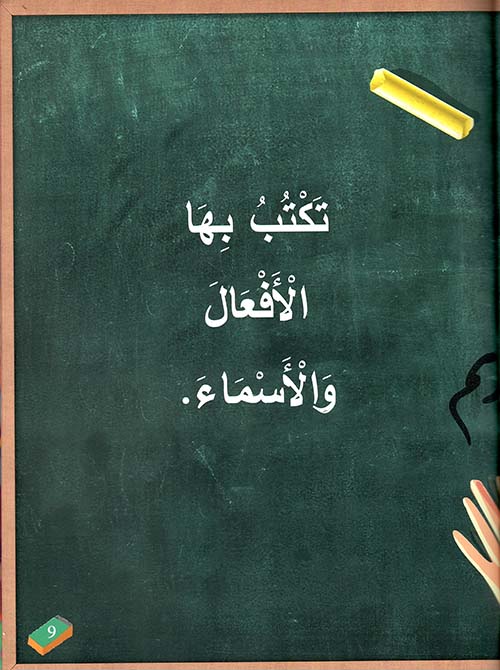 تَكْتُبُ بِهَا
الْأَفْعَالَ
وَالْأَسْمَاءَ.
9